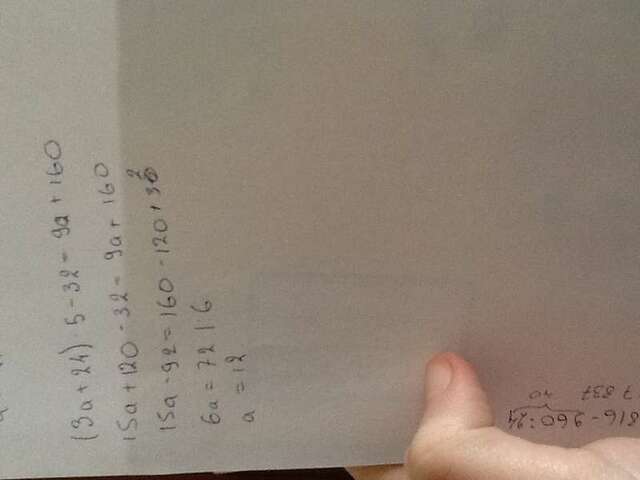 (3a + 24) · 5 - 32 = 9a + 160
15a + 120 - 32 = 9a + 160
15a - 9a = 160 - 120 + 32
6a = 72 | : 6
a = 12
816 - 960 : 24
7 837 40